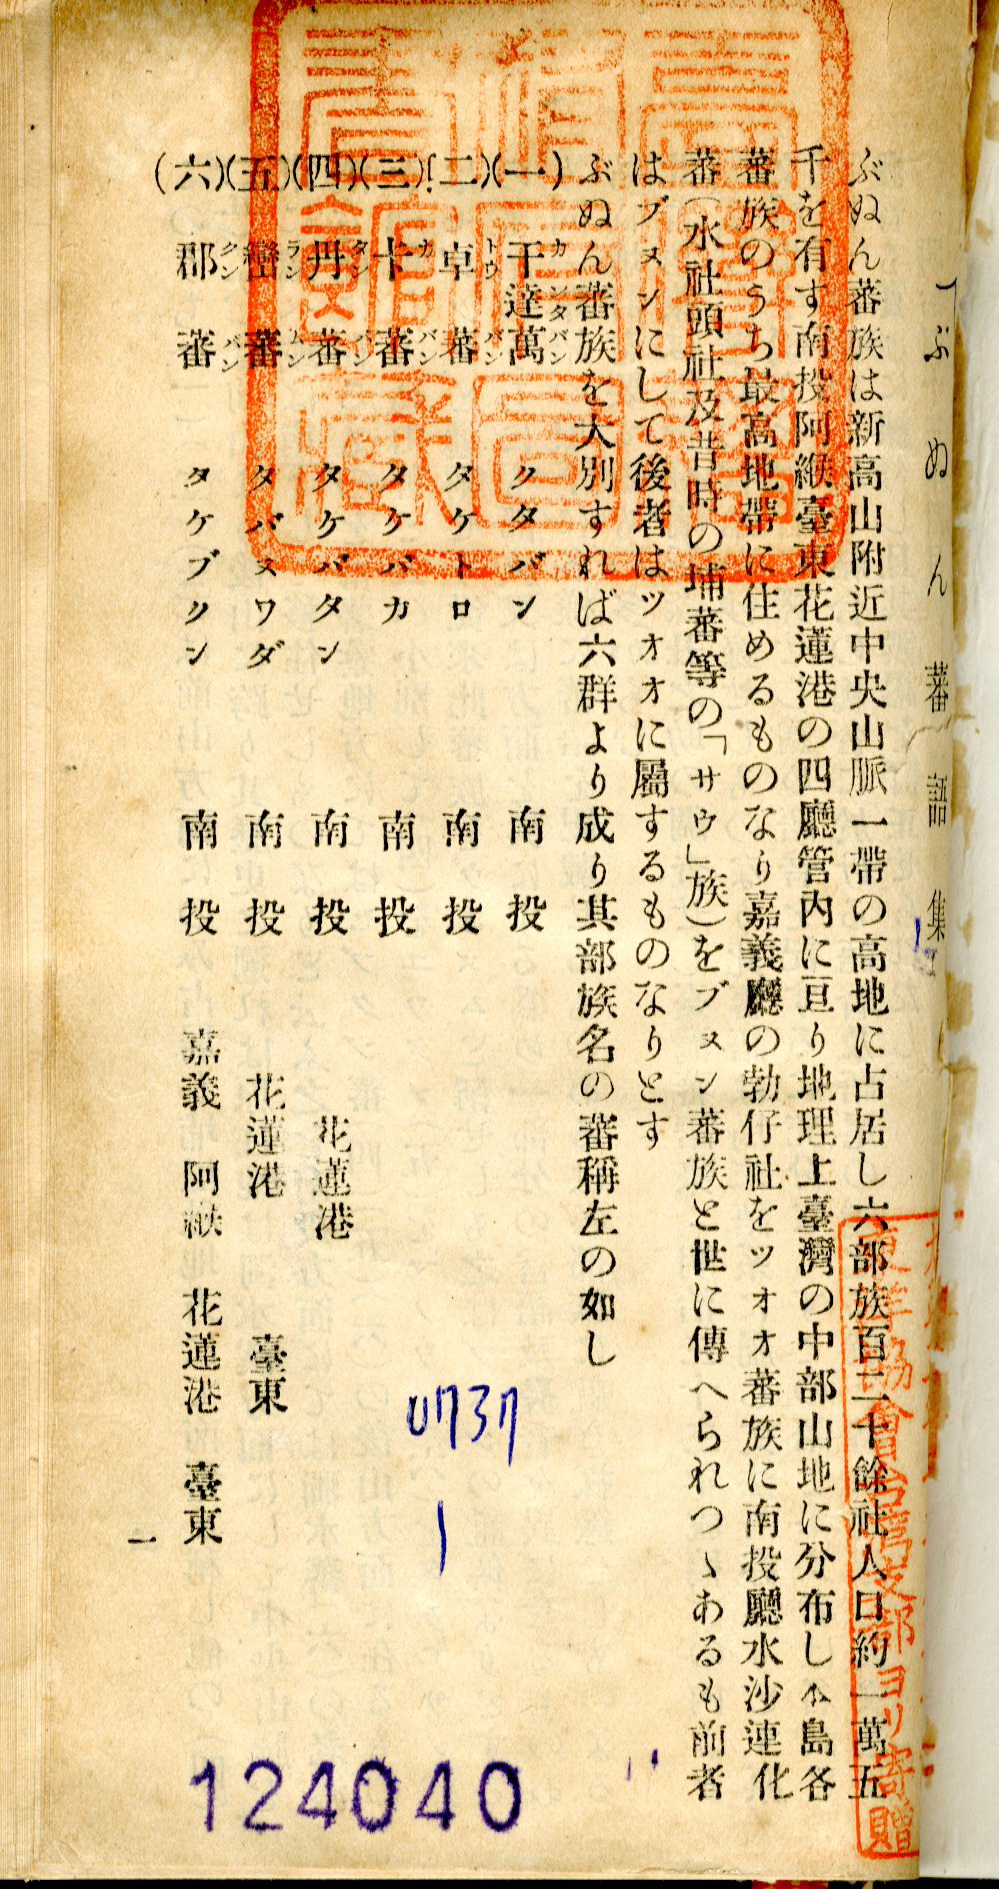 ぶぬん蕃語集
ぶぬん蕃族は新高山附近中央山脈一帶の高地に占居し六部族百二十餘社人口約一萬五
千を有す南投阿緱臺東花蓮港の四廳管內に亘り地理上臺灣の中部山地に分布し本島各
蕃族のうち最高地帶に住めるものなり嘉義廳の勃仔社をツオオ蕃族に南投廳水沙連化
蕃(水社頭社及昔時の埔蕃等の「サウ」族)をブヌン蕃族と世に傳へられつゝあるも前者
はブヌンにして後者はツオオに屬するものなりとす
ぶぬん蕃族を大別すれば六群より成り其部族名の蕃稱左の如し
(一) 干達萬 カンタバン クタバン 南投
(二) 卓蕃 トウバン タケトロ 南投
(三) 卡蕃 カバン タケバカ 南投
(四) 丹蕃 タンバン タケバタン 南投 花蓮港
(五) 巒蕃 ランムン タバヌワダ 南投 花蓮港 臺東
(六) 郡蕃 クンバン タケブクン 南投 嘉義 阿緱 花蓮港 臺東
一
東洋協會台灣支部ヨリ寄贈
0737
1
124040